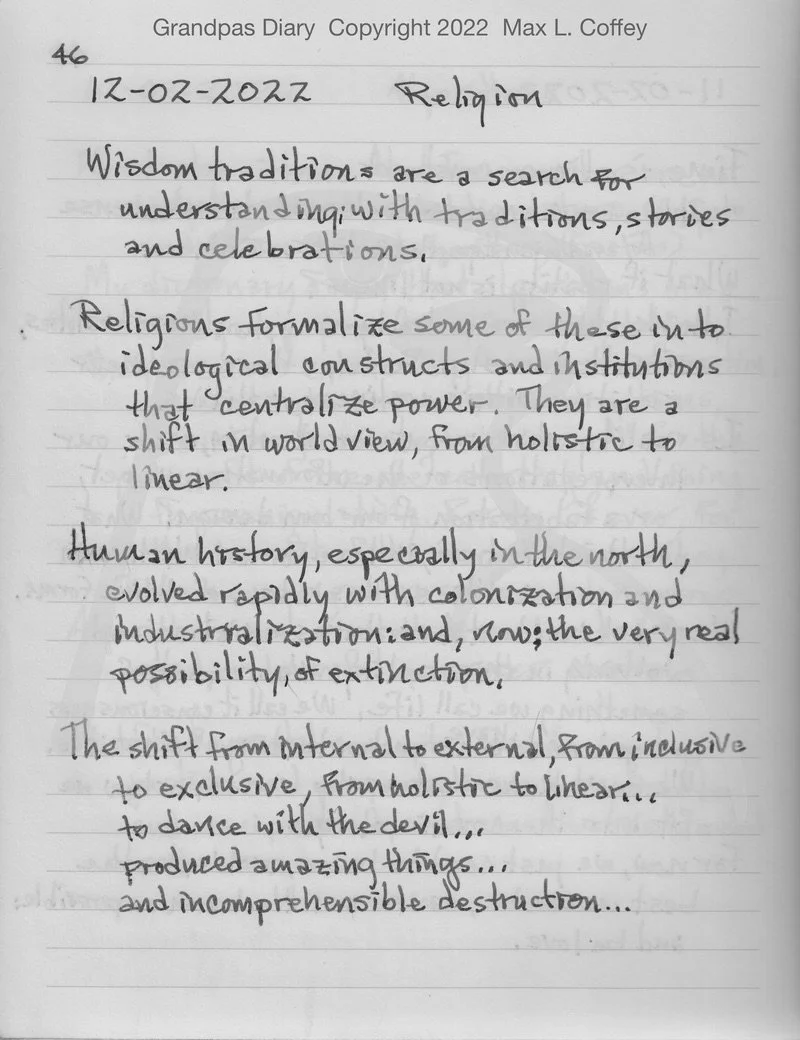 Grandpas Diary Copyright 2022 Max L. Coffey
46
12-02-2022 Religion
Wisdom traditions are a search for
understanding; with traditions, stories
and celebrations.
Religions formalize some of these into
ideological constructs and institutions
that centralize power. They are a
shift in world view, from holistic to
linear.
Human history, especially in the north,
evolved rapidly with colonization and
industrialization: and, now; the very real
possibility, of extinction.
The shift from internal to external, from inclusive
to exclusive, from holistic to linear...
to dance with the devil...
produced amazing things...
and incomprehensible destruction...